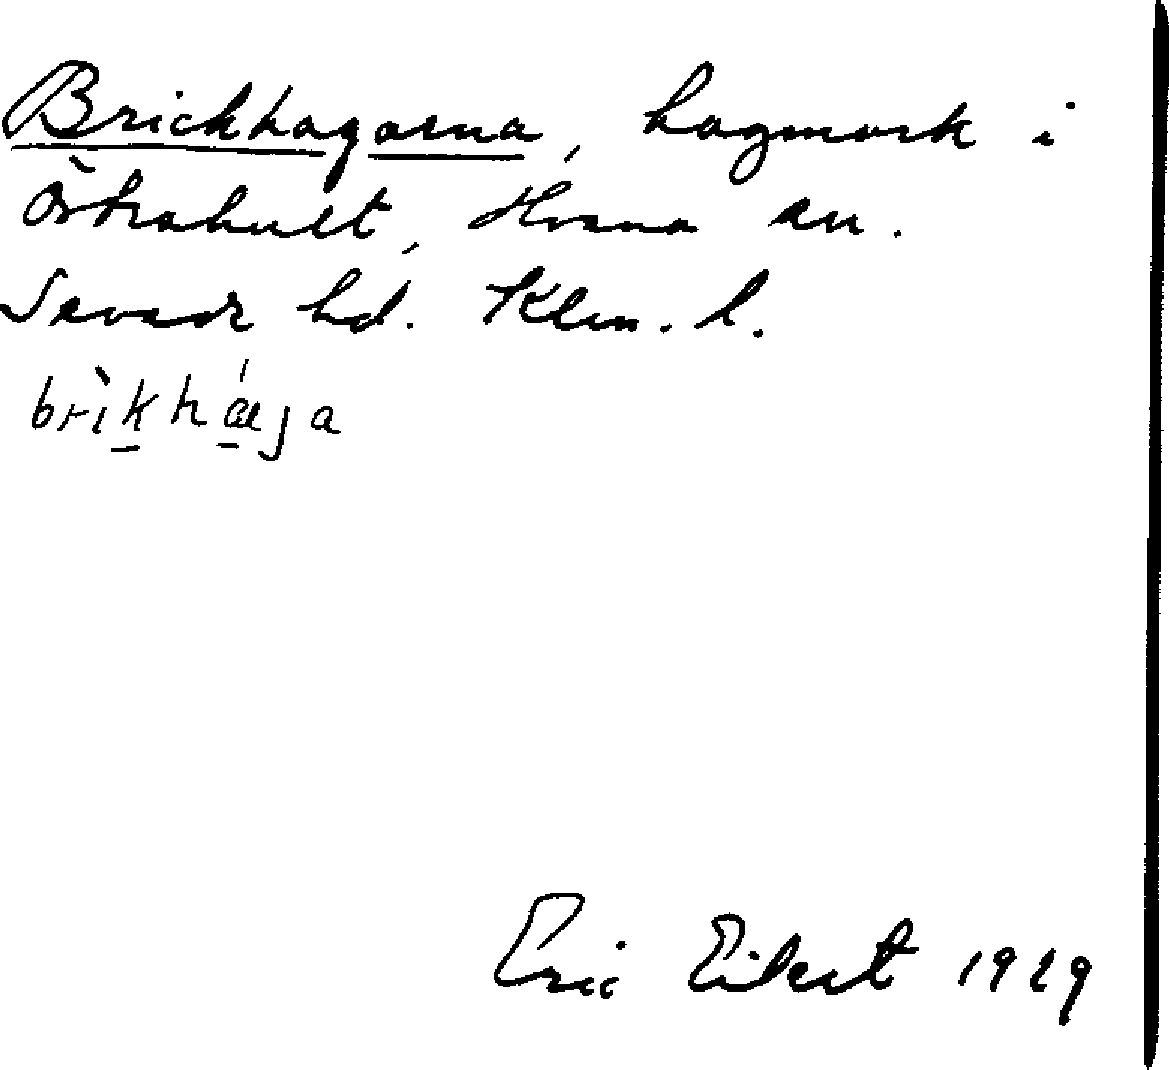 Brickhagarna, hagmark i
Östrahult, Hvena sn.
Sevede hd. Klm. l.
brìkhája
Eric Eilert 1929